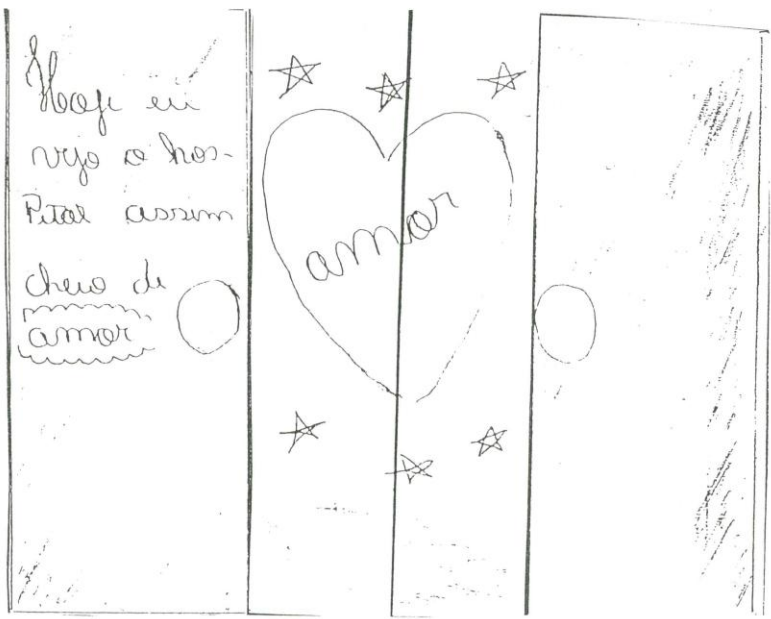 Hoje eu
vejo o hos-
Pital assim
cheio de
amor
amor